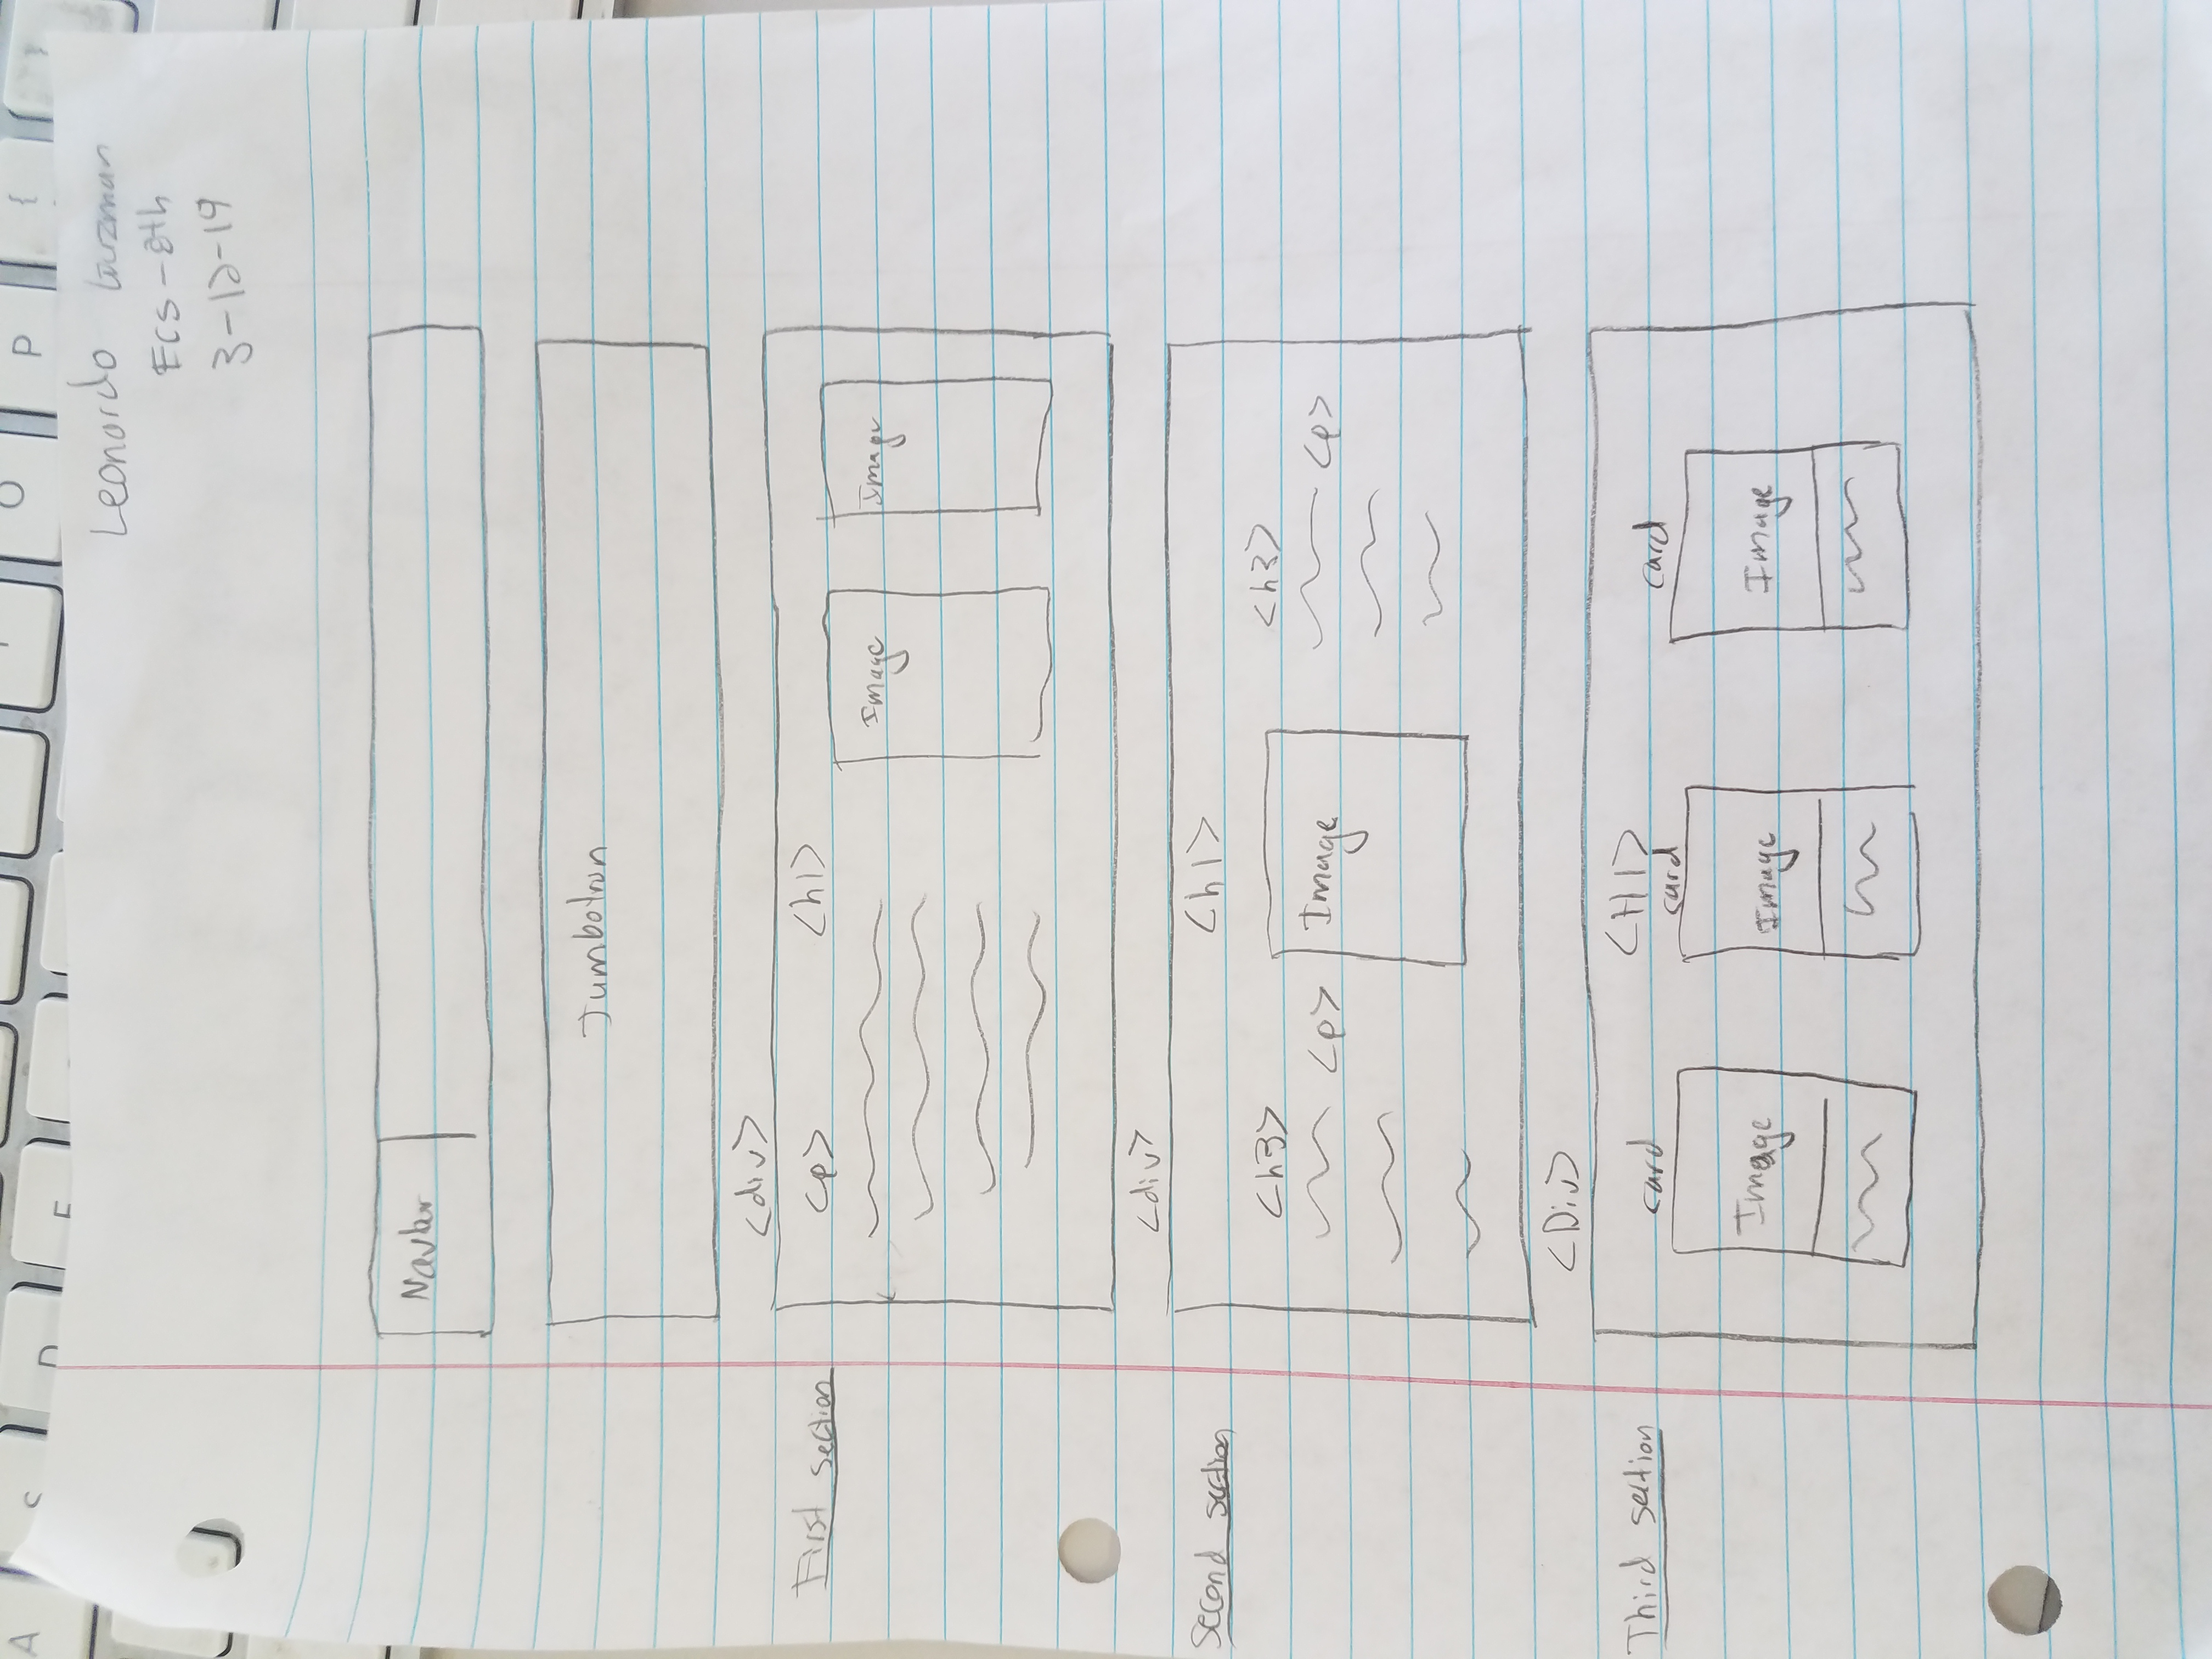 A S D F O P {
Leonardo Guzman
ECS - 8th
3-12-19
Navbar
Jumbotron
<div>
First section
<p> <h1>
Image Image
<div>
Second section
<h1>
<h3> <h3>
<p> Image <p>
<Div>
Third section
<H1>
card card card
Image Image Image